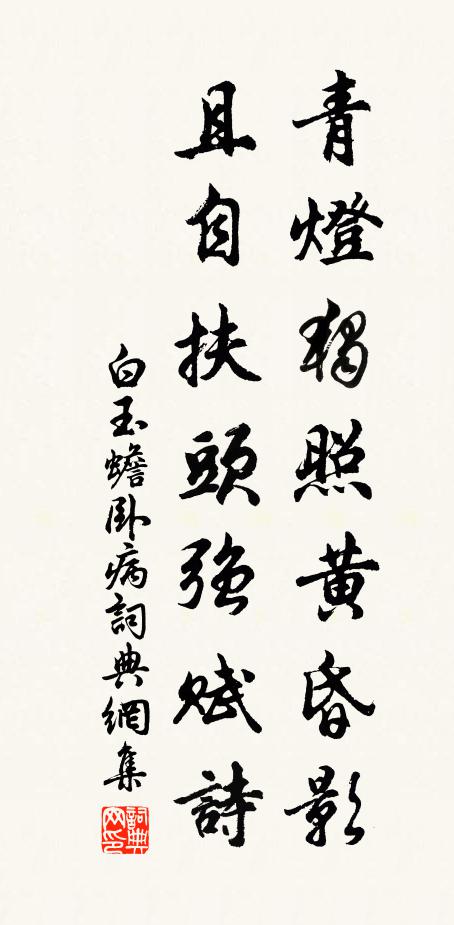 青燈獨照黃昏影
且自扶頭強賦詩
白玉蟾臥病詞典網集
詞典網印